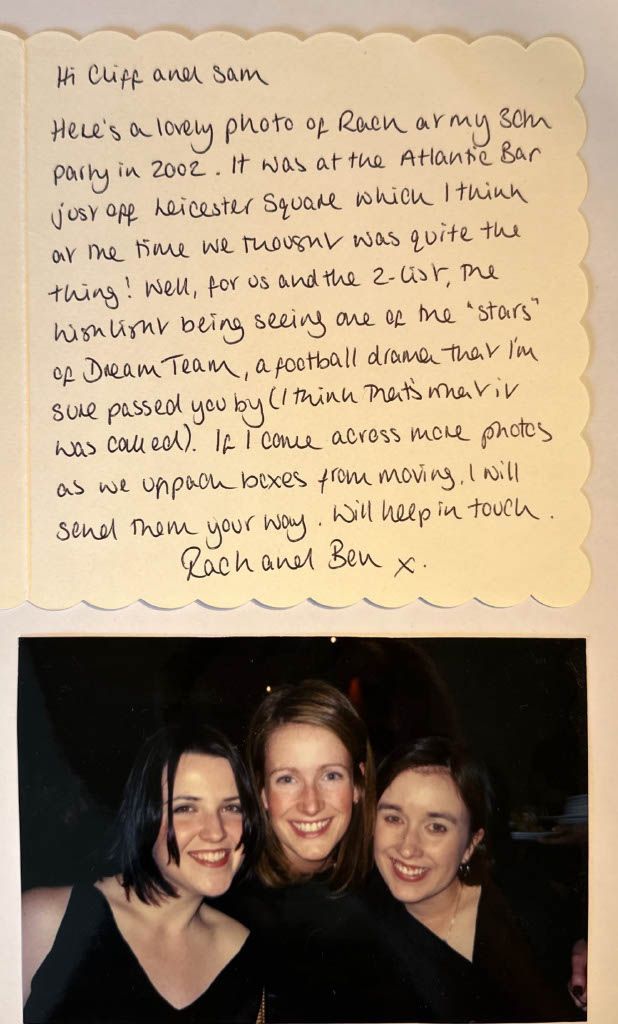 Hi Cliff and Sam
Here's a lovely photo of Rach at my 30th
party in 2002. It was at the Atlantic Bar
just off Leicester Square which I think
at the time we thought was quite the
thing! Well, for us and the Z-list, the
highlight being seeing one of the "stars"
of Dream Team, a football drama that I'm
sure passed you by (I think that's what it
was called). If I come across more photos
as we unpack boxes from moving, I will
send them your way. Will keep in touch.
Rach and Ben x.